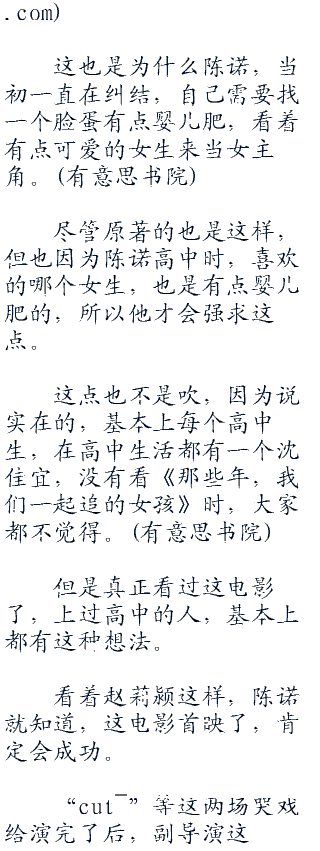 .com)
这也是为什么陈诺，当
初一直在纠结，自己需要找
一个脸蛋有点婴儿肥，看着
有点可爱的女生来当女主
角。(有意思书院)
尽管原著的也是这样，
但也因为陈诺高中时，喜欢
的哪个女生，也是有点婴儿
肥的，所以他才会强求这
点。
这点也不是吹，因为说
实在的，基本上每个高中
生，在高中生活都有一个沈
佳宜，没有看《那些年，我
们一起追的女孩》时，大家
都不觉得。(有意思书院)
但是真正看过这电影
了，上过高中的人，基本上
都有这种想法。
看着赵莉颖这样，陈诺
就知道，这电影首映了，肯
定会成功。
“cut¯”等这两场哭戏
给演完了后，副导演这